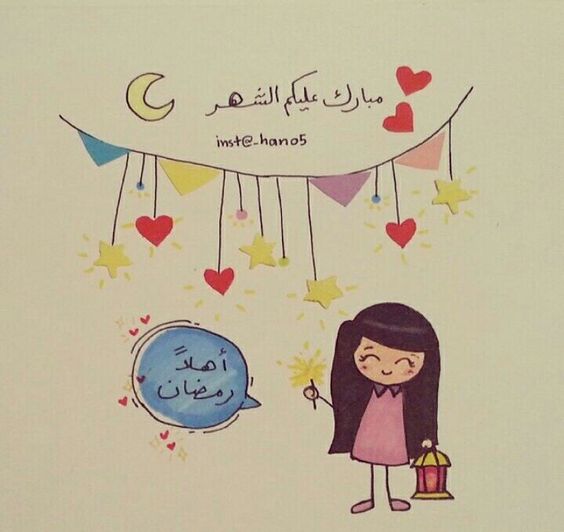 مبارك عليكم الشهر
inst@_hano5
أهلاً
رمضان